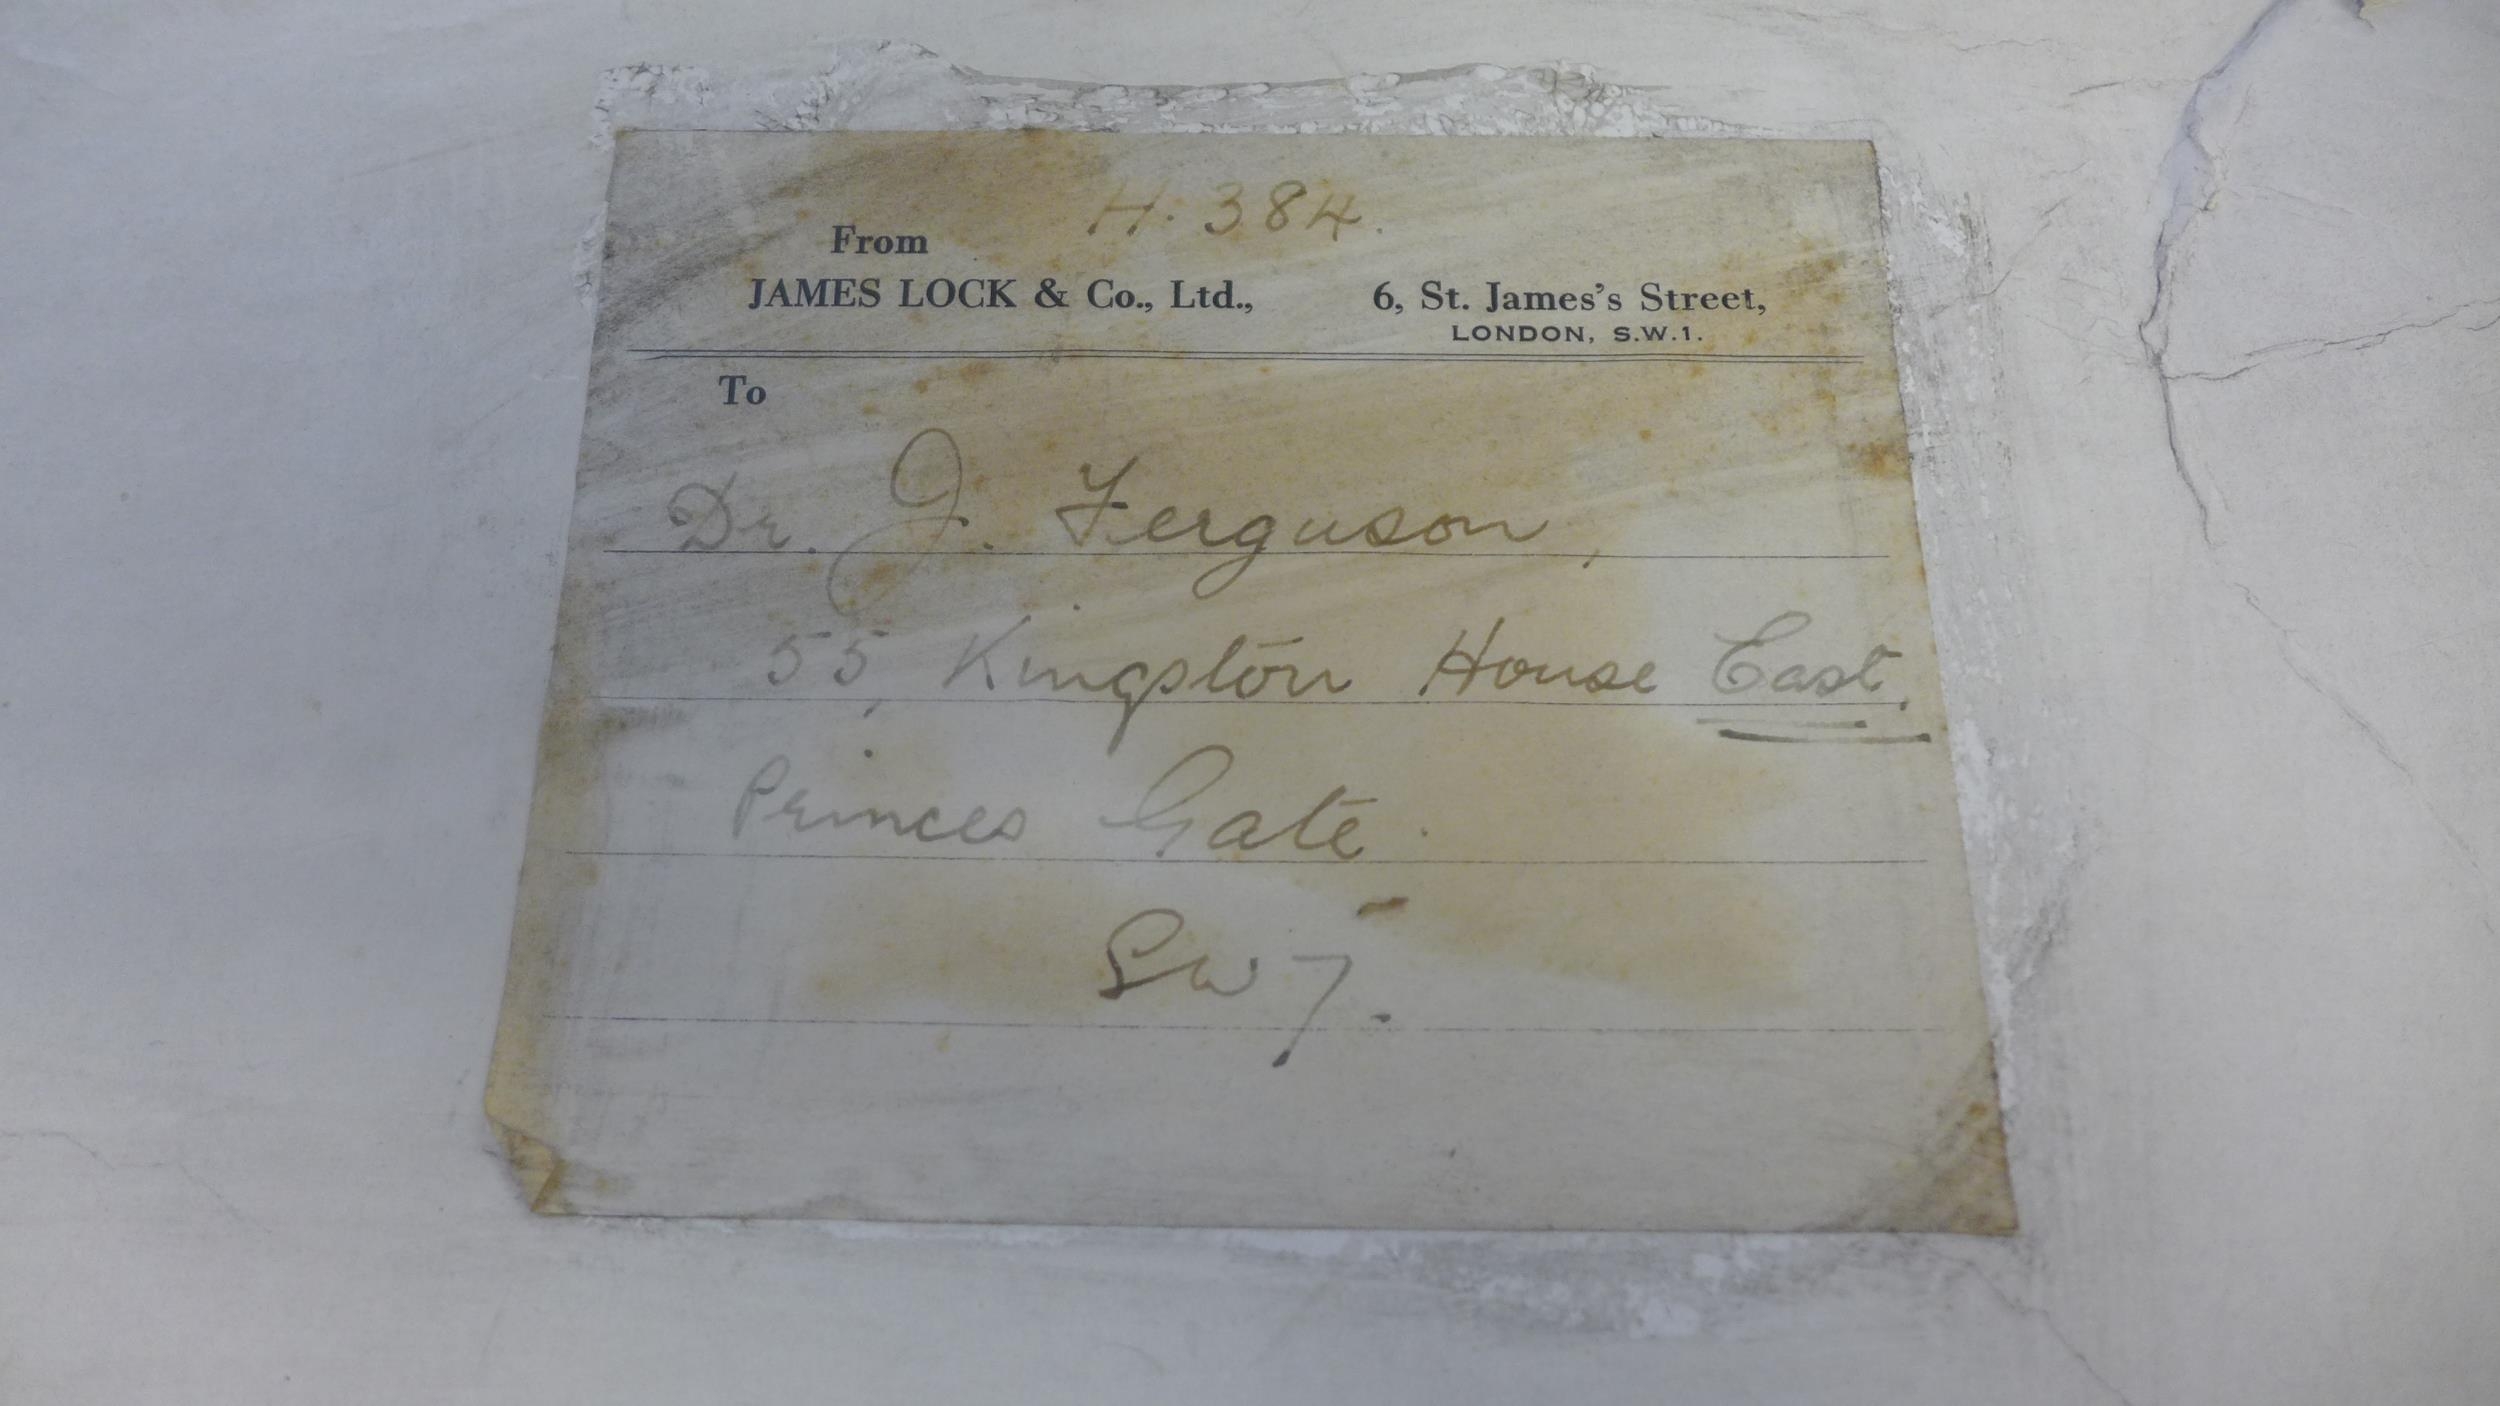 H. 384.
From
JAMES LOCK & Co., Ltd., 6, St. James's Street,
LONDON, S.W.1.
To
Dr. J. Ferguson,
55, Kingston House East,
Princes Gate.
SW7.